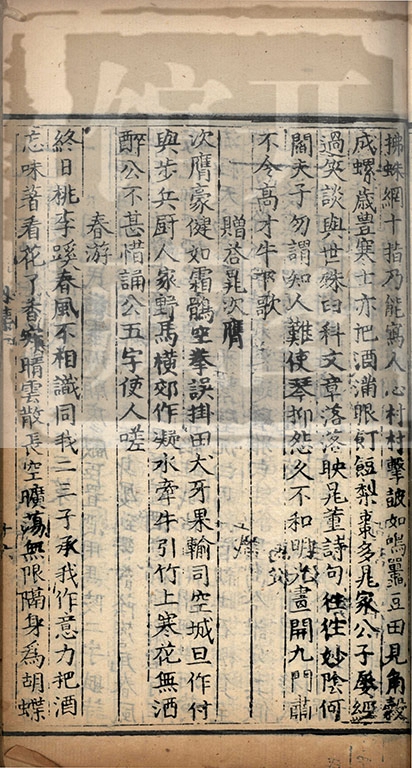 拂蛛網十指乃能寫人心村村擊皷如鳴鼉豆田見角穀
成螺歲豊寒士亦把酒滿眼飣餖梨棗多晁家公子屡經
過笑談與世殊臼科文章落落映晁董詩句往往妙隂何
閶夫子勿謂知人難使琴抑怨久不和明光晝開九門肅
不令高才牛下歌
贈荅晁次膺
次膺豪健如霜鶻空拳誤掛田犬牙果輸司空城旦作付
與步兵厨人家野馬横郊作凝水牽牛引竹上寒花無酒
醉公不甚惜誦公五字使人嗟
春游
終日桃李蹊春風不相識同我二三子承我作意力把酒
忘味著看花了香寂晴雲散長空曠蕩無限隔身爲胡蝶